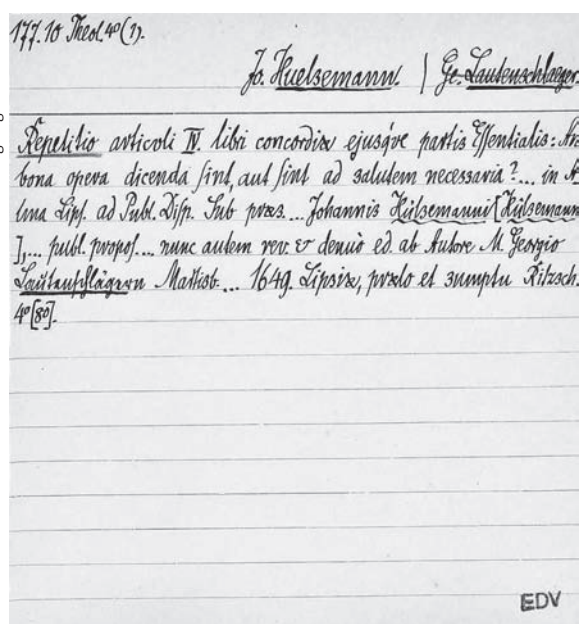 177.10 Theol. 4º (1).
Jo. Huelsemann. | Ge. Lautenschlaeger.
Repetitio articoli IV. libri concordiæ ejusqve partis Essentialis:
bona opera dicenda sint, aut sint ad salutem necessaria? ... in A
lma Lips. ad Publ. Disp. Sub præs. ... Johannis Hülsemanni [Hülsemann
], ... publ. propos. ... nunc autem rev. et denuò ed. ab Autore M. Georgio
Lautenschlägern ... 1649. Lipsiæ, prælo et sumptu Ritzsch.
4º [8º].
EDV